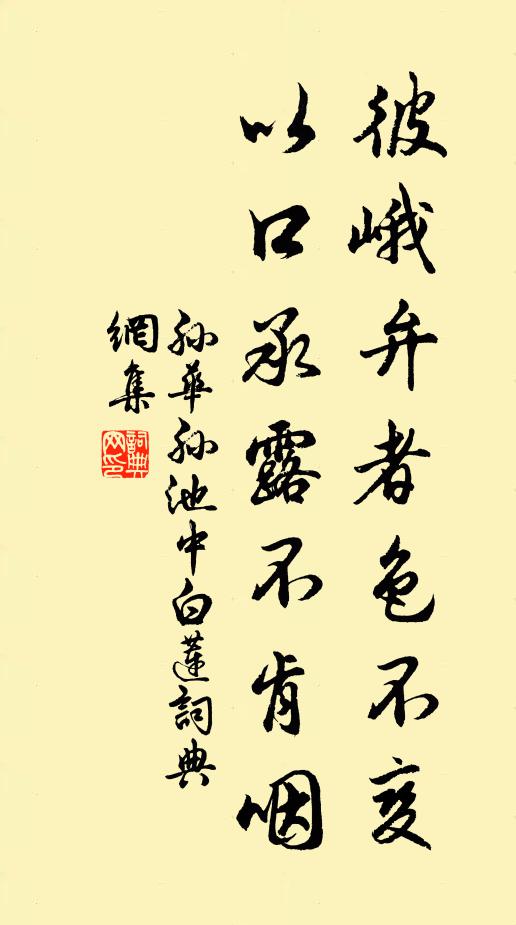 彼峨弁者色不变
以口承露不肯咽
孙华孙池中白莲詞典
網集
詞典网印